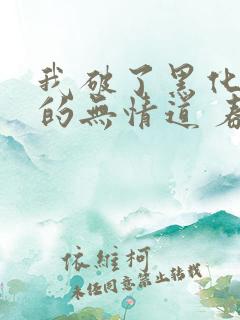 我破了黑化
的無情道 春
依維柯
未經同意禁止轉載